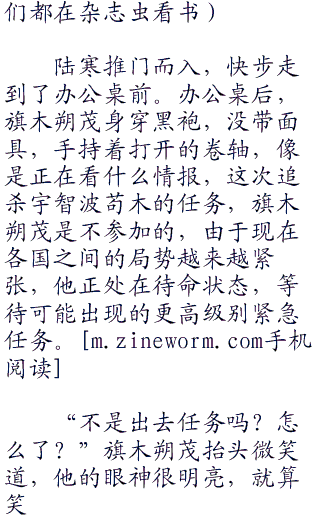 们都在杂志虫看书）
陆寒推门而入，快步走
到了办公桌前。办公桌后，
旗木朔茂身穿黑袍，没带面
具，手持着打开的卷轴，像
是正在看什么情报，这次追
杀宇智波苟木的任务，旗木
朔茂是不参加的，由于现在
各国之间的局势越来越紧
张，他正处在待命状态，等
待可能出现的更高级别紧急
任务。[m.zineworm.com手机
阅读]
“不是出去任务吗？怎
么了？”旗木朔茂抬头微笑
道，他的眼神很明亮，就算
笑